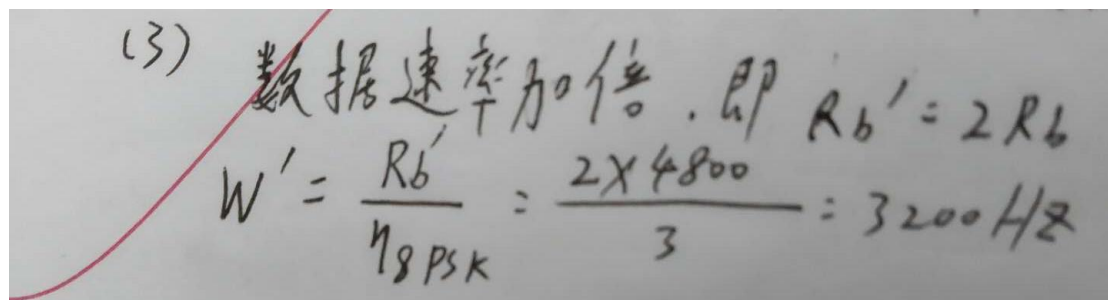 (3) 数据速率加倍.即 Rb' = 2Rb
W' = Rb' / η8PSK = 2×4800 / 3 = 3200Hz